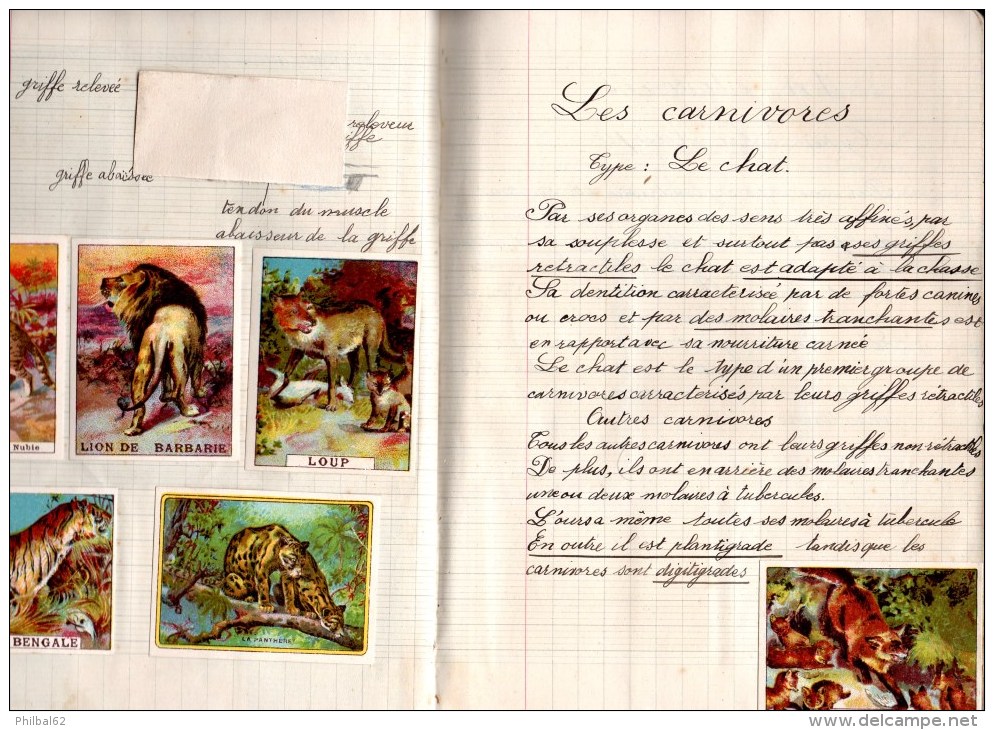 griffe relevée
releveur
iffe
griffe abaissée
tendon du muscle
abaisseur de la griffe
Nubie
LION DE BARBARIE
LOUP
BENGALE
LA PANTHÈRE
Les carnivores
Type : Le chat.
Par ses organes des sens très affinés, par
sa souplesse et surtout pas ses griffes
retractiles le chat est adapté à la chasse
Sa dentition carracterisée par de fortes canines
ou crocs et par des molaires tranchantes est
en rapport avec sa nourriture carnée
Le chat est le type d'un premier groupe de
carnivores carracterisés par leurs griffes rétractiles
Autres carnivores
Tous les autres carnivores ont leurs griffes non rétractiles
De plus, ils ont en arrière des molaires tranchantes
une ou deux molaires à tubercules.
L'ours a même toutes ses molaires à tubercule
En outre il est plantigrade tandis que les
carnivores sont digitigrades
Philbal62
www.delcampe.net